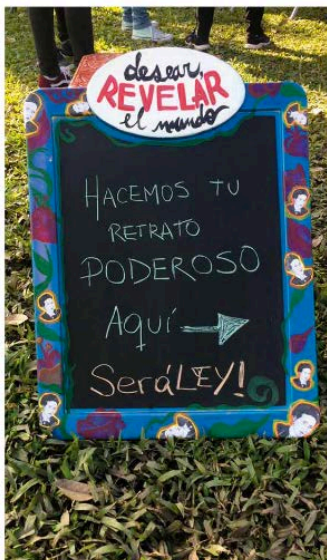 desear,
REVELAR
el mundo
HACEMOS TU
RETRATO
PODEROSO
Aquí
SeráLEY!